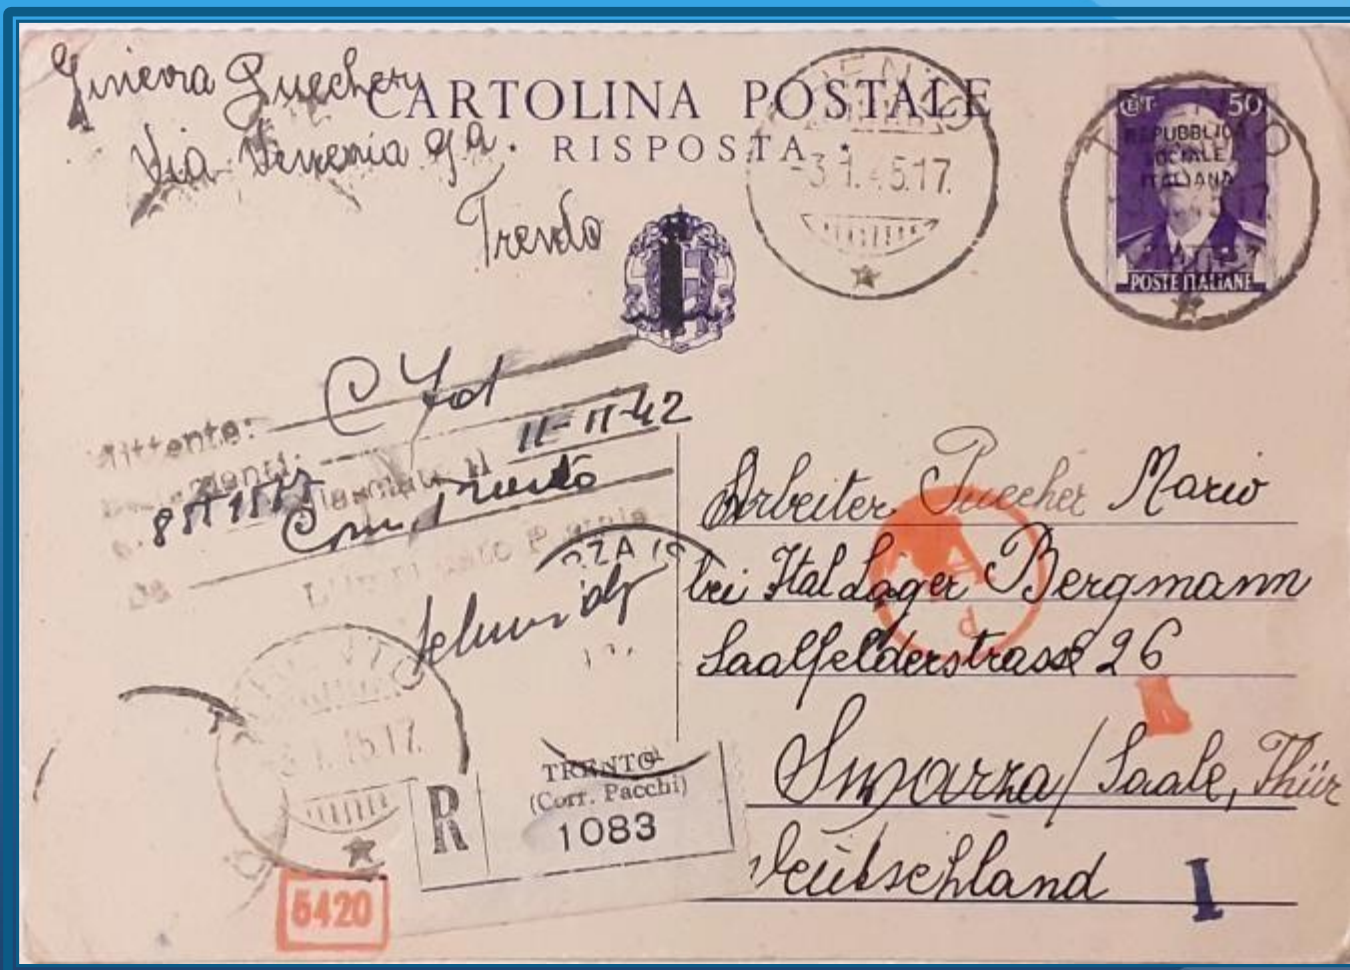 Ginevra Puecher
Via Venezia 9a.
Trento
CARTOLINA POSTALE
RISPOSTA
-3.1.45.17.
CT. 50
REPUBBLICA
SOCIALE
ITALIANA
POSTE ITALIANE
Mittente:
11-11-42
Com. Trento
Arbeiter Puecher Mario
bei Ital Lager Bergmann
Saalfelderstrasse 26
Swarza/Saale, Thür
Deutschland
d
-3.1.45.17.
R
TRENTO
(Corr. Pacchi)
1083
5420
1